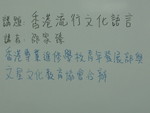 講題：香港流行文化語言
講者：孫家臻
香港專業進修學校青年發展部與
文星文化教育協會合辦